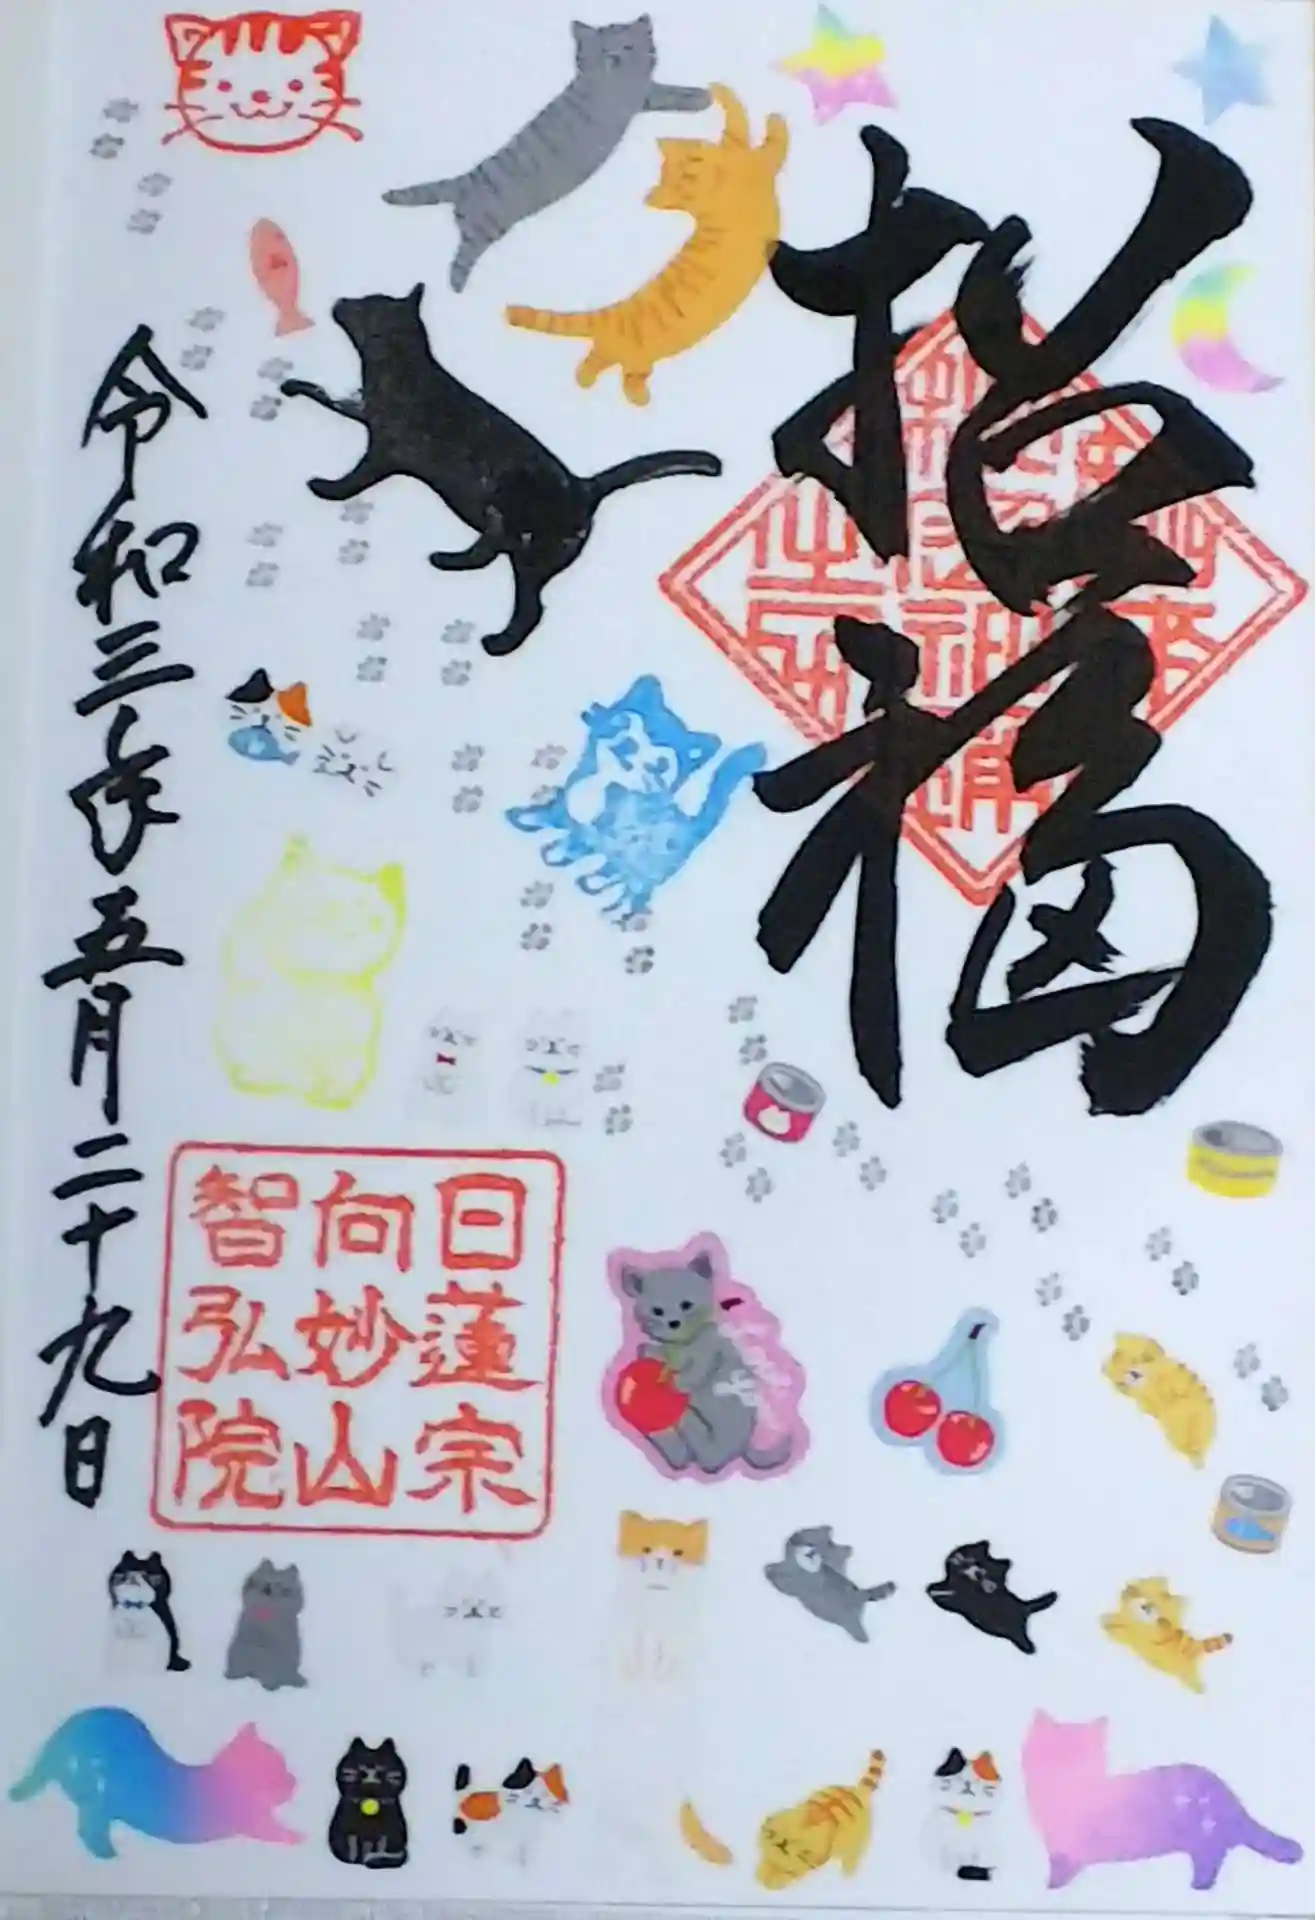 招福
日蓮宗
向妙山
智弘院
令和三年五月二十九日